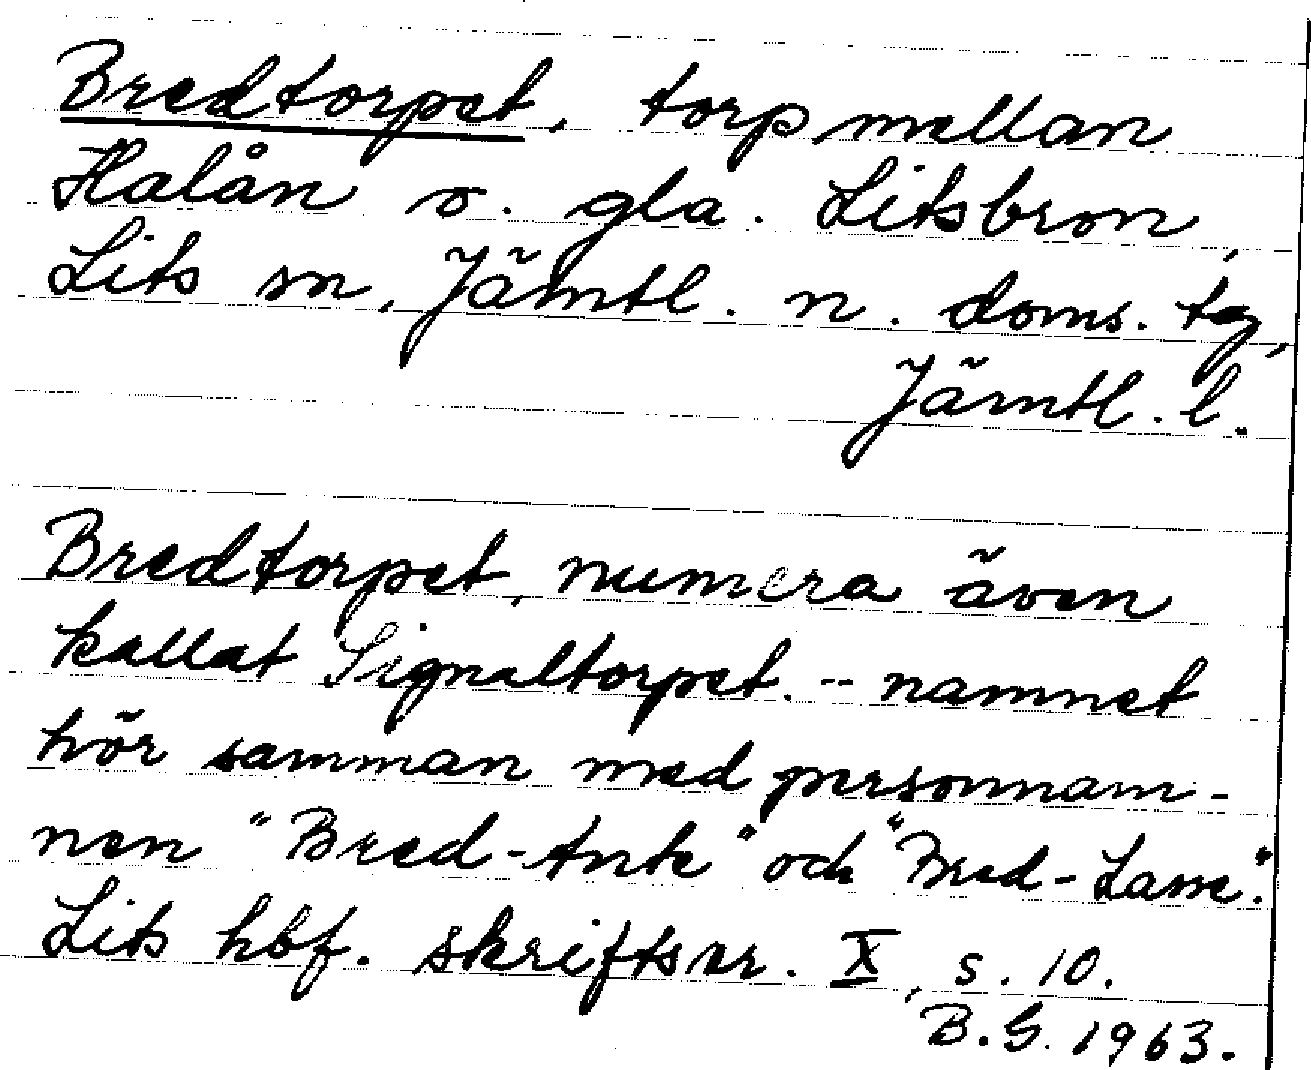 Bredtorpet, torp mellan
Halån o. gla. Litsbron,
Lits sn, Jämtl. n. doms. tg,
Jämtl. l.
Bredtorpet, numera även
kallat Signaltorpet. -- namnet
hör samman med personnam-
nen "Bred-Ante" och "Bred-Lasse".
Lits hbf. skriftser. X, s. 10.
B.G. 1963.